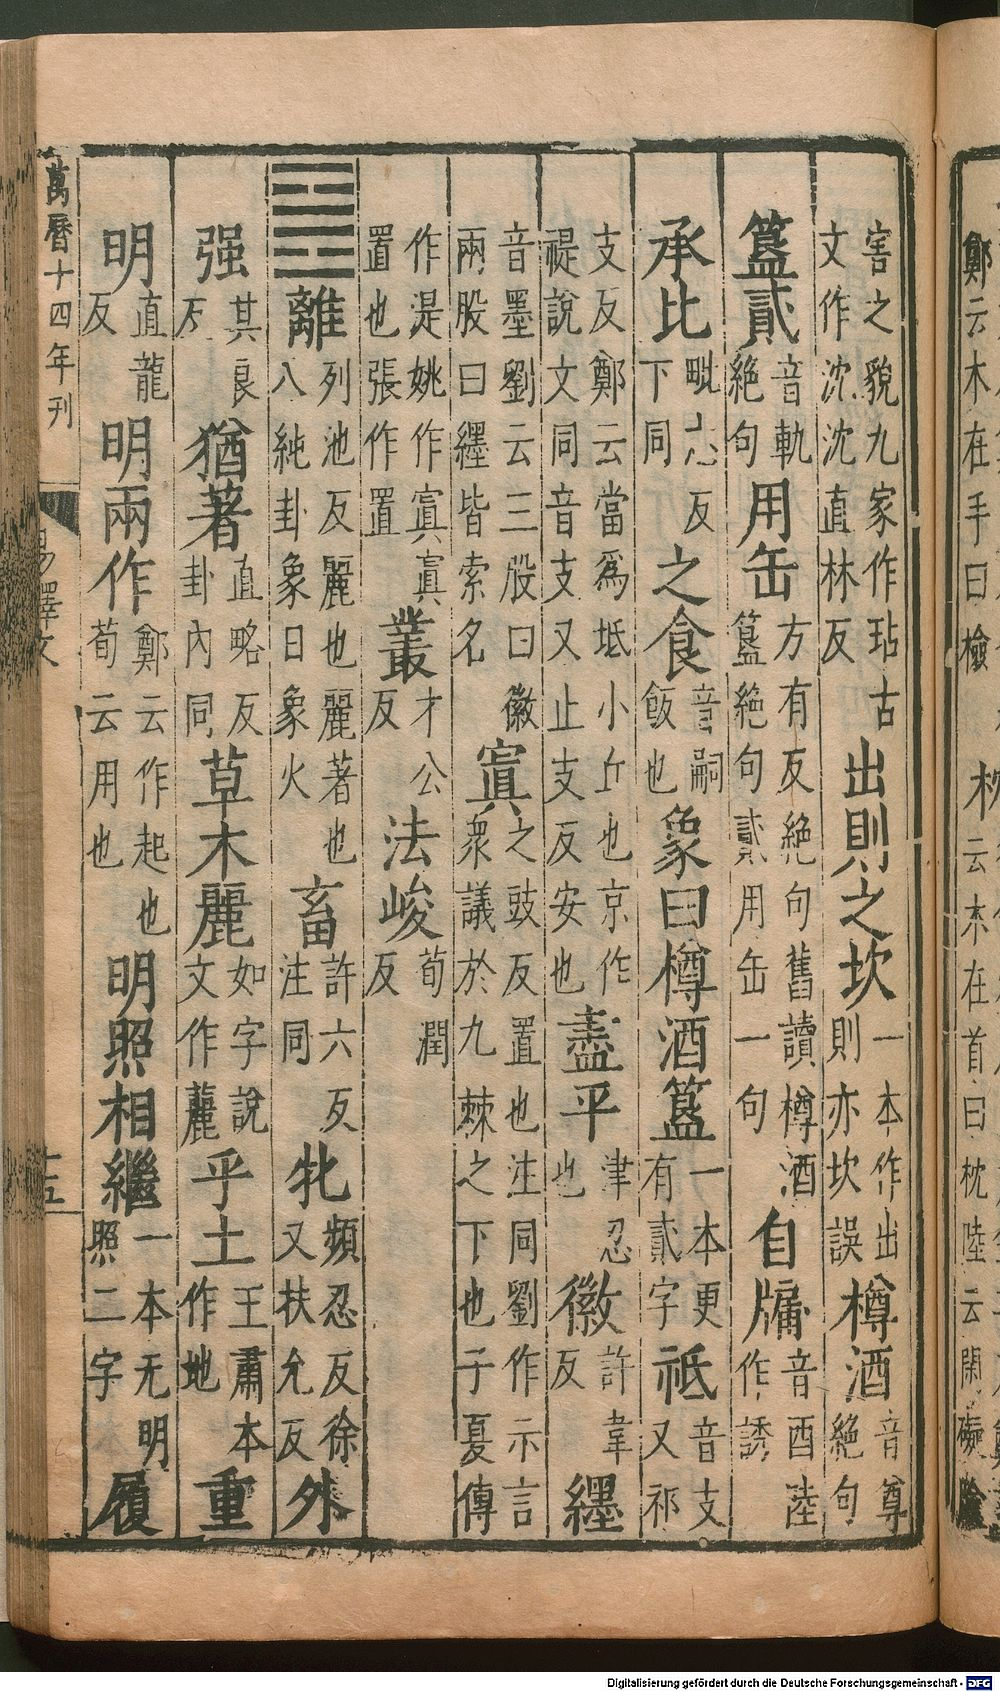 鄭云木在手曰檢
枕
云木在首曰枕陸云閑礙險
害之貌九家作玷古文作沈沈直林反出則之坎一本作出則亦坎誤樽酒音尊絕句
簋貳音軌絕句用缶方有反絕句舊讀樽酒簋絕句貳用缶一句自牖音酉陸作誘
承比毗志反下同之食音嗣飯也象曰樽酒簋一本更有貳字祗音支又祁
支反鄭云當爲坻小丘也京作禔說文同音支又止支反安也盡平津忍也徽許韋反纆
音墨劉云三股曰徽兩股曰纆皆索名寘之豉反置也注同劉作示言衆議於九棘之下也子夏傳
作湜姚作寘寘置也張作置叢才公反法峻荀潤反
離列池反麗也麗著也八純卦象日象火畜許六反注同牝頻忍反徐又扶允反外
强其良反猶著直略反卦內同草木麗如字說文作麗乎土王肅本作地重
明直龍反明兩作鄭云作起也荀云用也明照相繼一本无明照二字履
萬曆十四年刊
易釋文
十五
Digitalisierung gefördert durch die Deutsche Forschungsgemeinschaft - DFG